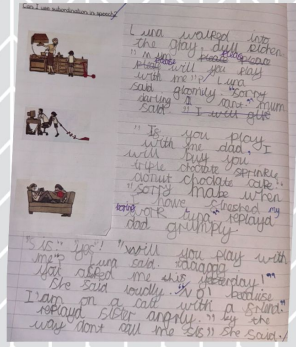 Can I use subordination in speech?
Luna walked into
the gray, dull kichen
"mum please please
will you play
with me"? Luna
said gloomly. "sorry
darling I cant." mum
said. "I will give
"If you play
with me dad, I
will buy you
triple choclate sprinkle
donut choclate cake".
"sorry mate when
I have finished my
work Luna" replayd
dad grumply.
"SIS" "yes"! "will you play with
me"? Luna said
You asked me this yesterday!"
She said loudly. "NO! because
I am on a call with a friend."
replayd Sister angrily. "By the
way dont call me SIS" she said.